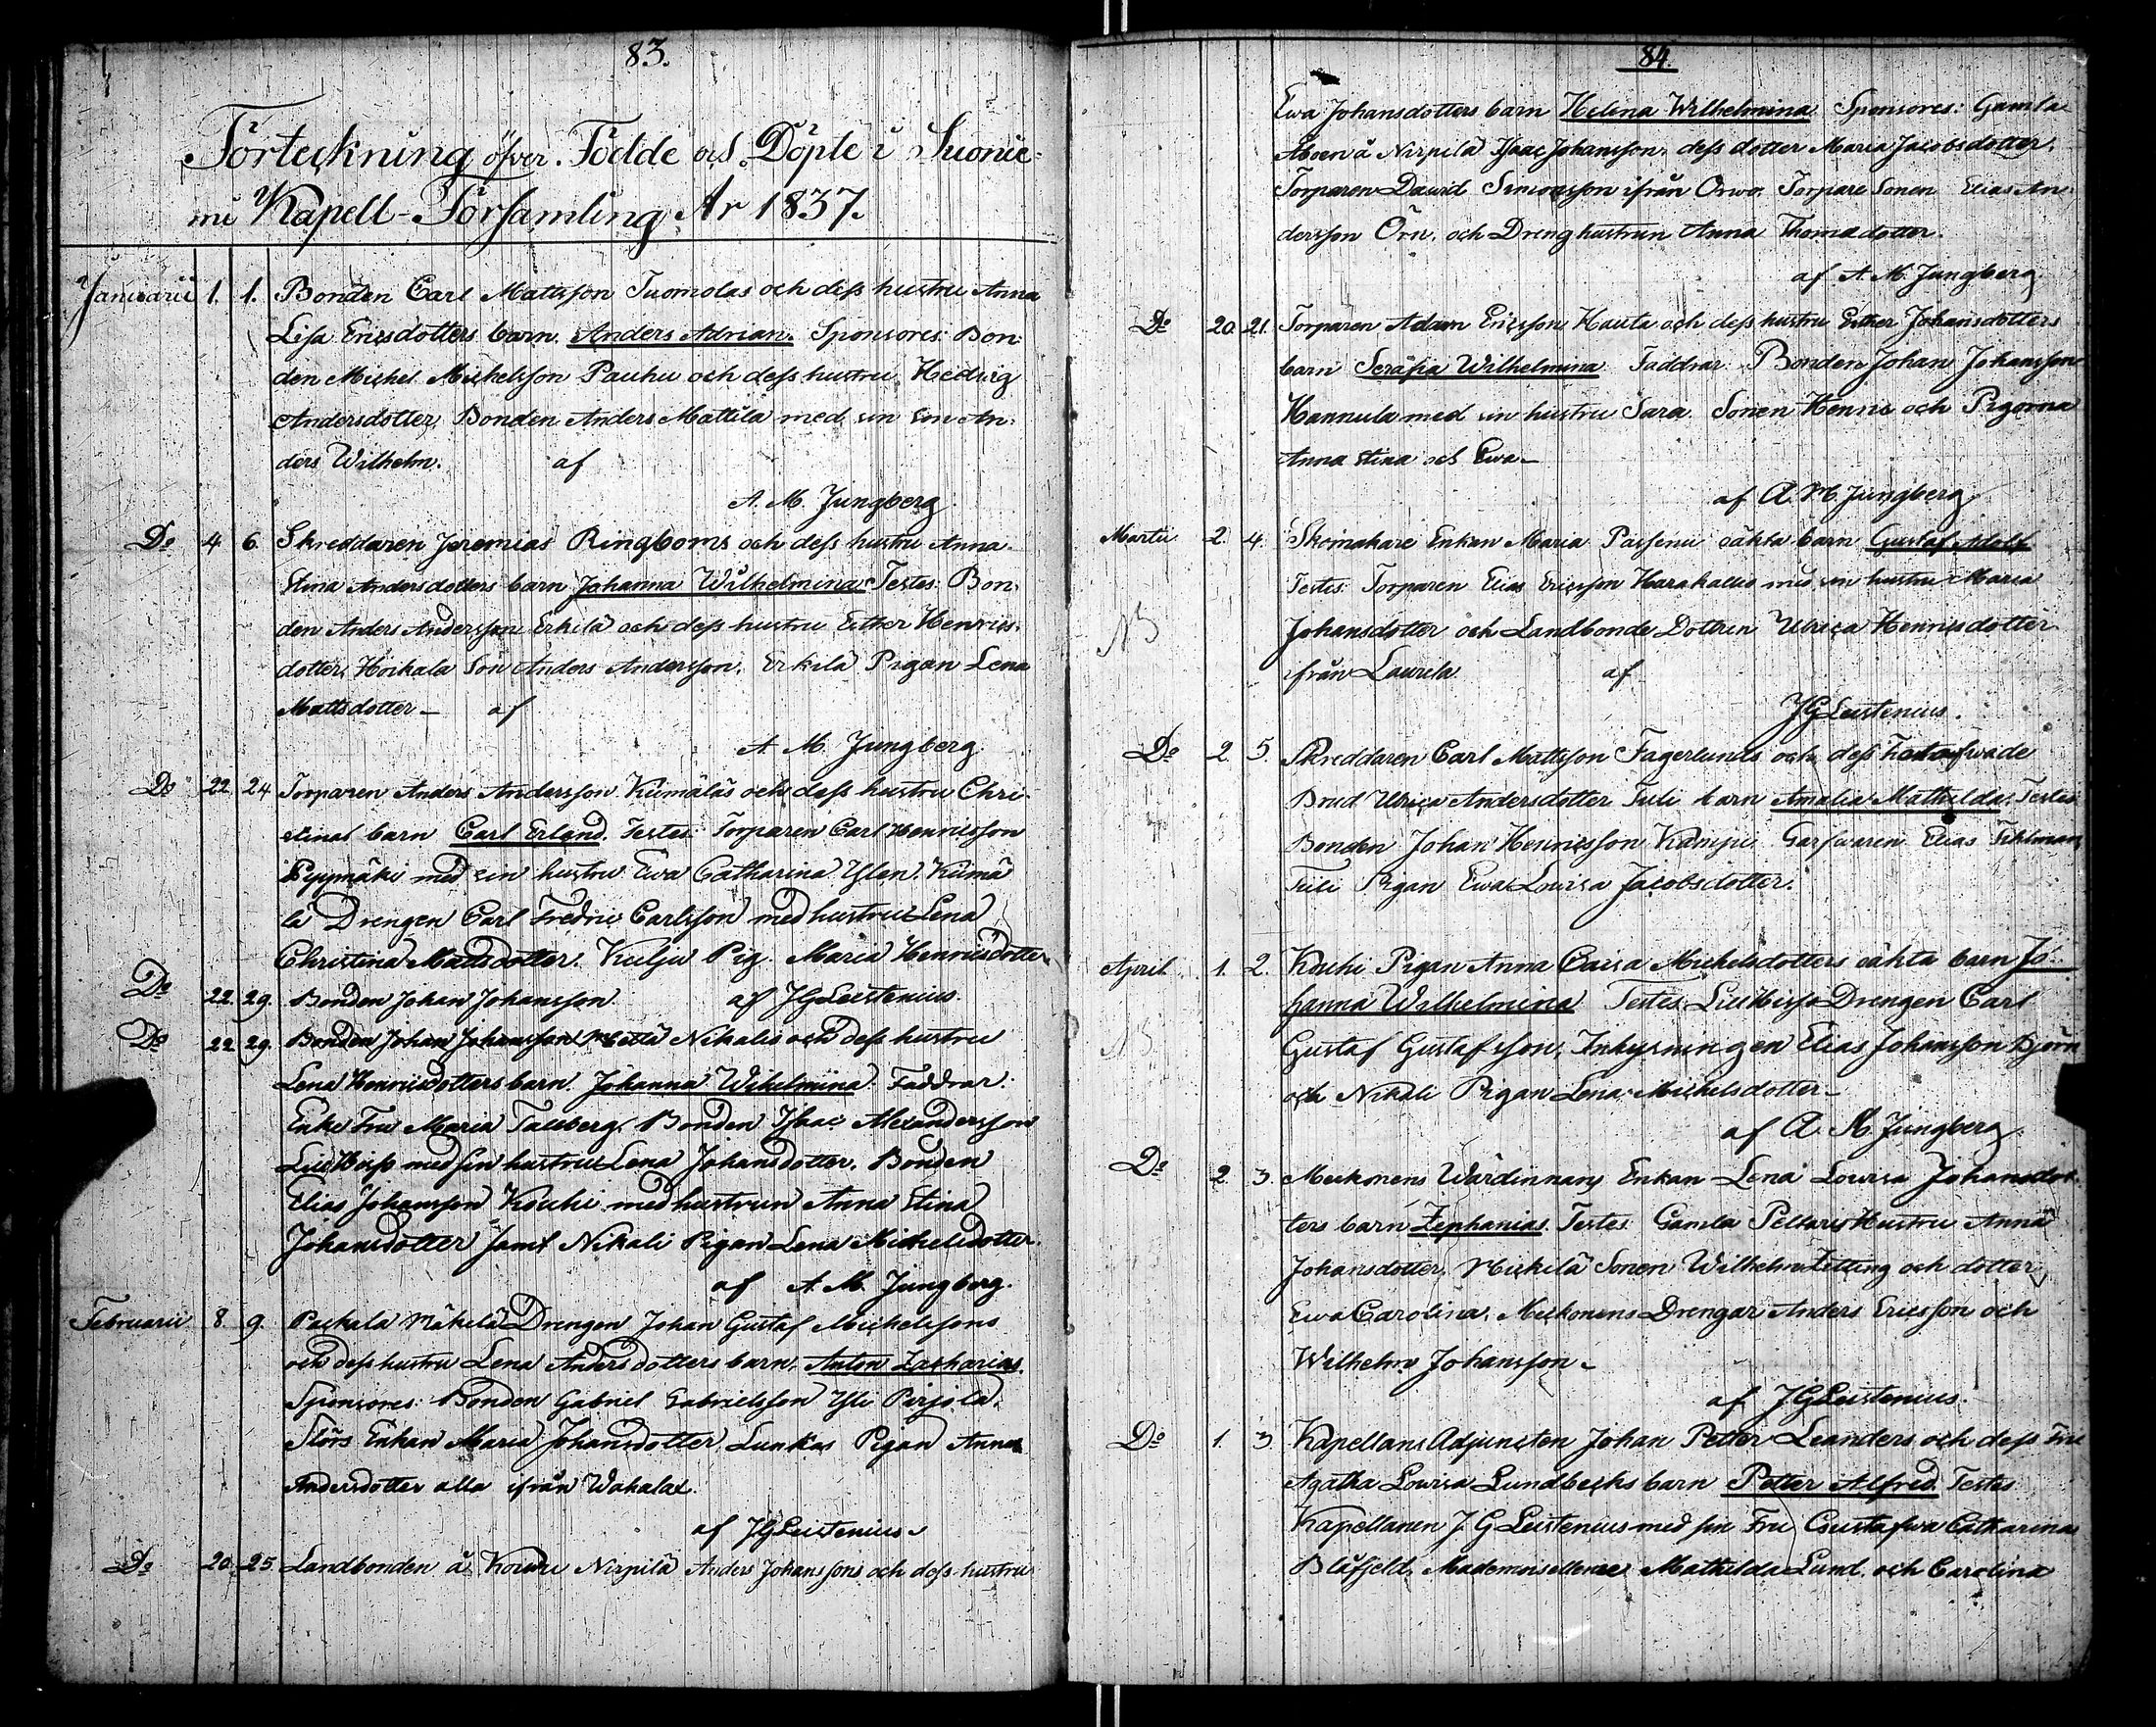 83.
Förteckning öfver Födde och Döpte i Suonie-
mi Kapell-Församling År 1837.
Januarii 1. 1. Bonden Carl Mattsson Tuomolas och dess hustru Anna
Lisa Ericsdotters barn Anders Adrian. Sponsores: Bon-
den Michel Michelsson Pauhu och dess hustru Hedvig
Andersdotter, Bonden Anders Mattila med sin son An-
ders Wilhelm. af
A. M. Jungberg
Do 4 6 Skreddaren Jeremias Ringboms och dess hustru Anna
Stina Andersdotters barn Johanna Wilhelmina Testes: Bon-
den Anders Andersson Erkilä och dess hustru Esther Henrics-
dotter, Hoikala Son Anders Andersson, Erkilä Pigan Lena
Mattsdotter – af
A. M. Jungberg
Do 22 24 Torparen Anders Andersson Kiimäläs och dess hustru Chri-
stinas barn Carl Erland. Testes: Torparen Carl Henricsson
med sin hustru Ewa Catharina Kiimä
lä Drengen Carl Fredric Carlsson med hustru Lena
Christina Mattsdotter. Kulju Pig. Maria Henricsdotter
Do 22. 29. Bonden Johan Johansson af JGLeistenius.
Do 22 29. Bonden Johan Johansson Nikalis och dess hustru
Lena Henricsdotters barn Johanna Wilhelmina. Faddrar:
Enke Fru Maria Tallberg, Bonden Isaac Alexandersson
med sin hustru Lena Johansdotter, Bonden
Elias Johansson Kouhi med hustrun Anna Stina
Johansdotter samt Nikali Pigan Lena Michelsdotter.
af A. M. Jungberg.
Februarii 8. 9. Packala Mäkelä Drengen Johan Gustaf Michelssons
och dess hustru Lena Andersdotters barn, Anton Zacharias.
Sponsores: Bonden Gabriel Gabrielsson Yli Pirjola,
Störs Enkan Maria Johansdotter, Lunkas Pigan Anna
Andersdotter alla ifrån Wakala.
af JGLeistenius
Do 20. 25. Landbonden å Nirpilä Anders Johanssons och dess hustru
84.
Ewa Johansdotters barn Helena Wilhelmina Sponsores: Gamla
Åboen å Nirpilä Isaac Johansson, dess dotter Maria Jacobsdotter,
Torparen David Simonsson ifrån Orwo, Torpare Sonen Elias An-
dersson Örn, och Dreng hustrun Anna Thomadotter.
af A. M. Jungberg
Do 20. 21. Torparen Adam Ericsson Hauta och dess hustru Esther Johansdotters
barn Serafia Wilhelmina Faddrar: Bonden Johan Johansson
Hannula med sin hustru Sara. Sonen Henric och Pigorna
Anna Stina och Ewa –
af A. M. Jungberg
Martii 2. 4. Skomakare Enkan Maria Passenii oäkta barn Gustaf Adolf
Testes: Torparen Elias Ericsson Harakallio med sin hustru Maria
NB Johansdotter och Landbonde Dottren Ulrica Henricsdotter
ifrån Laurila. af
JGLeistenius.
Do 2. 5. Skreddaren Carl Mattsson Fagerlunds och dess
Brud Ulrica Andersdotter Tuli barn Amalia Mathilda. Testes
Bonden Johan Henricsson Kamppi Garfwaren Elias
Tuli Pigan Ewa Lovisa Jacobsdotter.
April 1. 2. Kouhi Pigan Anna Caisa Michelsdotters oäkta barn Jo-
hanna Wilhelmina Testes: Drengen Carl
NB Gustaf Gustafsson, Inhysningen Elias Johansson Björn
och Nikali Pigan Lena Michelsdotter –
af A. M. Jungberg
Do 2. 3 Meckonens Wärdinnan, Enkan Lena Lovisa Johansdot-
ters barn Zephanias. Testes: Gamla Hustru Anna
Johansdotter, Mickilä Sonen Wilhelm Zitting och dotter
Ewa Carolina, Meckonens Drengar Anders Ericsson och
Wilhelm Johansson –
af JGLeistenius.
Do 1. 3 Kapellans Adjuncten Johan Petter Leanders och dess Fru
Agatha Lovisa Lundbecks barn Petter Alfred. Testes
Kapellanen J G Leistenius med sin Fru Gustafwa Catharina
Blåfjeld, Mademoisellerne Mathilda Lund, och Carolina